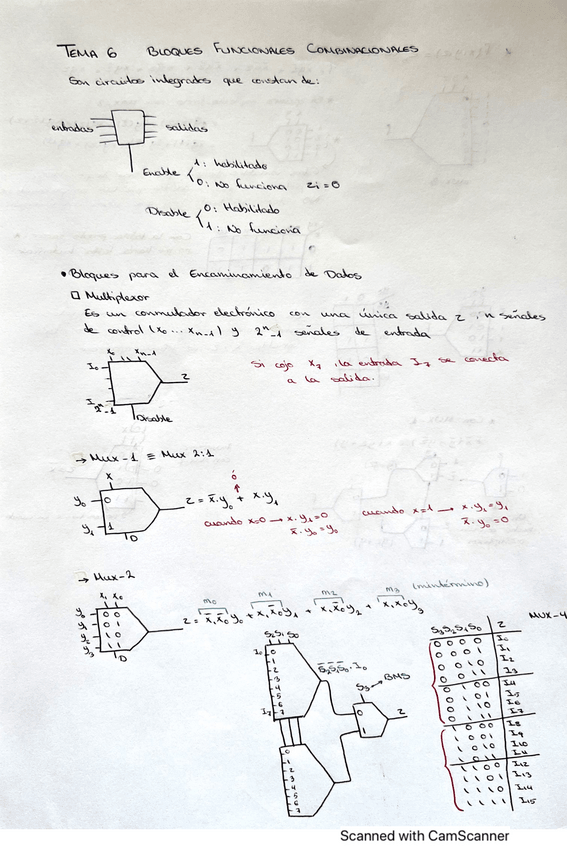 TEMA 6 BLOQUES FUNCIONALES COMBINACIONALES
Son circuitos integrados que constan de:
entradas salidas
Enable 1: habilitado
0: No funciona zi=0
Disable 0: Habilitado
1: No funciona
• Bloques para el Encaminamiento de Datos
□ Multiplexor
Es un conmutador electrónico con una única salida z, n señales
de control (x₀...xₙ₋₁) y 2ⁿ-1 señales de entrada
x₀ xₙ₋₁
I₀ z
I 2ⁿ-1
Disable
Si cojo x₇, la entrada I₇ se conecta
a la salida.
→ Mux-1 ≡ Mux 2:1
x
y₀ 0
y₁ 1
D
ó
z = x̄·y₀ + x·y₁
cuando x=0 → x·y₁=0
x̄·y₀=y₀
cuando x=1 → x·y₁=y₁
x̄·y₀=0
→ Mux-2
x₁ x₀
y₀ 0 0
y₁ 0 1
y₂ 1 0
y₃ 1 1
D
m₀ m₁ m₂ m₃ (mintérmino)
z = x̄₁x̄₀y₀ + x̄₁x₀y₁ + x₁x̄₀y₂ + x₁x₀y₃
S₂S₁S₀
I₀ 0
1
2
3
4
5
6
I₇ 7
S̄₂S̄₁S̄₀·I₀
S₃ → BMS
0
1
z
0
1
2
3
4
5
6
7
MUX-4
S₃S₂S₁S₀ z
0 0 0 0 I₀
0 0 0 1 I₁
0 0 1 0 I₂
0 0 1 1 I₃
0 1 0 0 I₄
0 1 0 1 I₅
0 1 1 0 I₆
0 1 1 1 I₇
1 0 0 0 I₈
1 0 0 1 I₉
1 0 1 0 I₁₀
1 0 1 1 I₁₁
1 1 0 0 I₁₂
1 1 0 1 I₁₃
1 1 1 0 I₁₄
1 1 1 1 I₁₅
Scanned with CamScanner